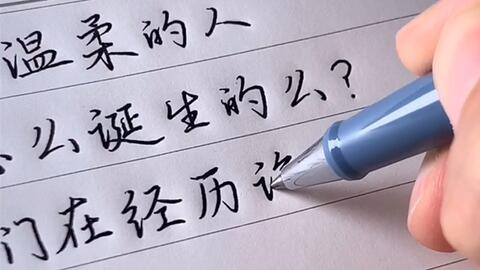 温柔的人
么诞生的么?
门在经历